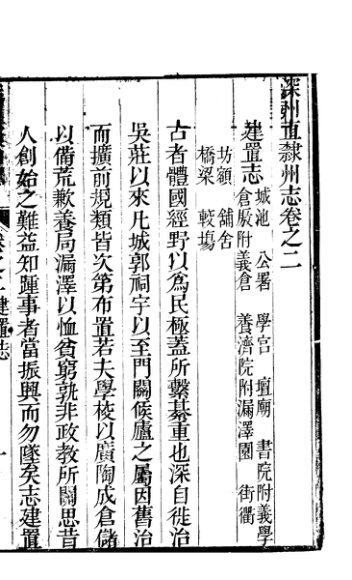 深州直隸州志卷之二
建置志 城池 公署 學宮 壇廟 書院附義學
倉厫附義倉 養濟院附漏澤園 街衢
坊額 舖舍
橋梁 較塲
古者體國經野以為民極蓋所繫綦重也深自徙治
吳莊以來凡城郭祠宇以至門關候廬之屬因舊治
而擴前規類皆次第布置若夫學校以廣陶成倉儲
以備荒歉養局漏澤以恤貧窮孰非政教所關思昔
人創始之難益知踵事者當振興而勿墜矣志建置
建置志
一